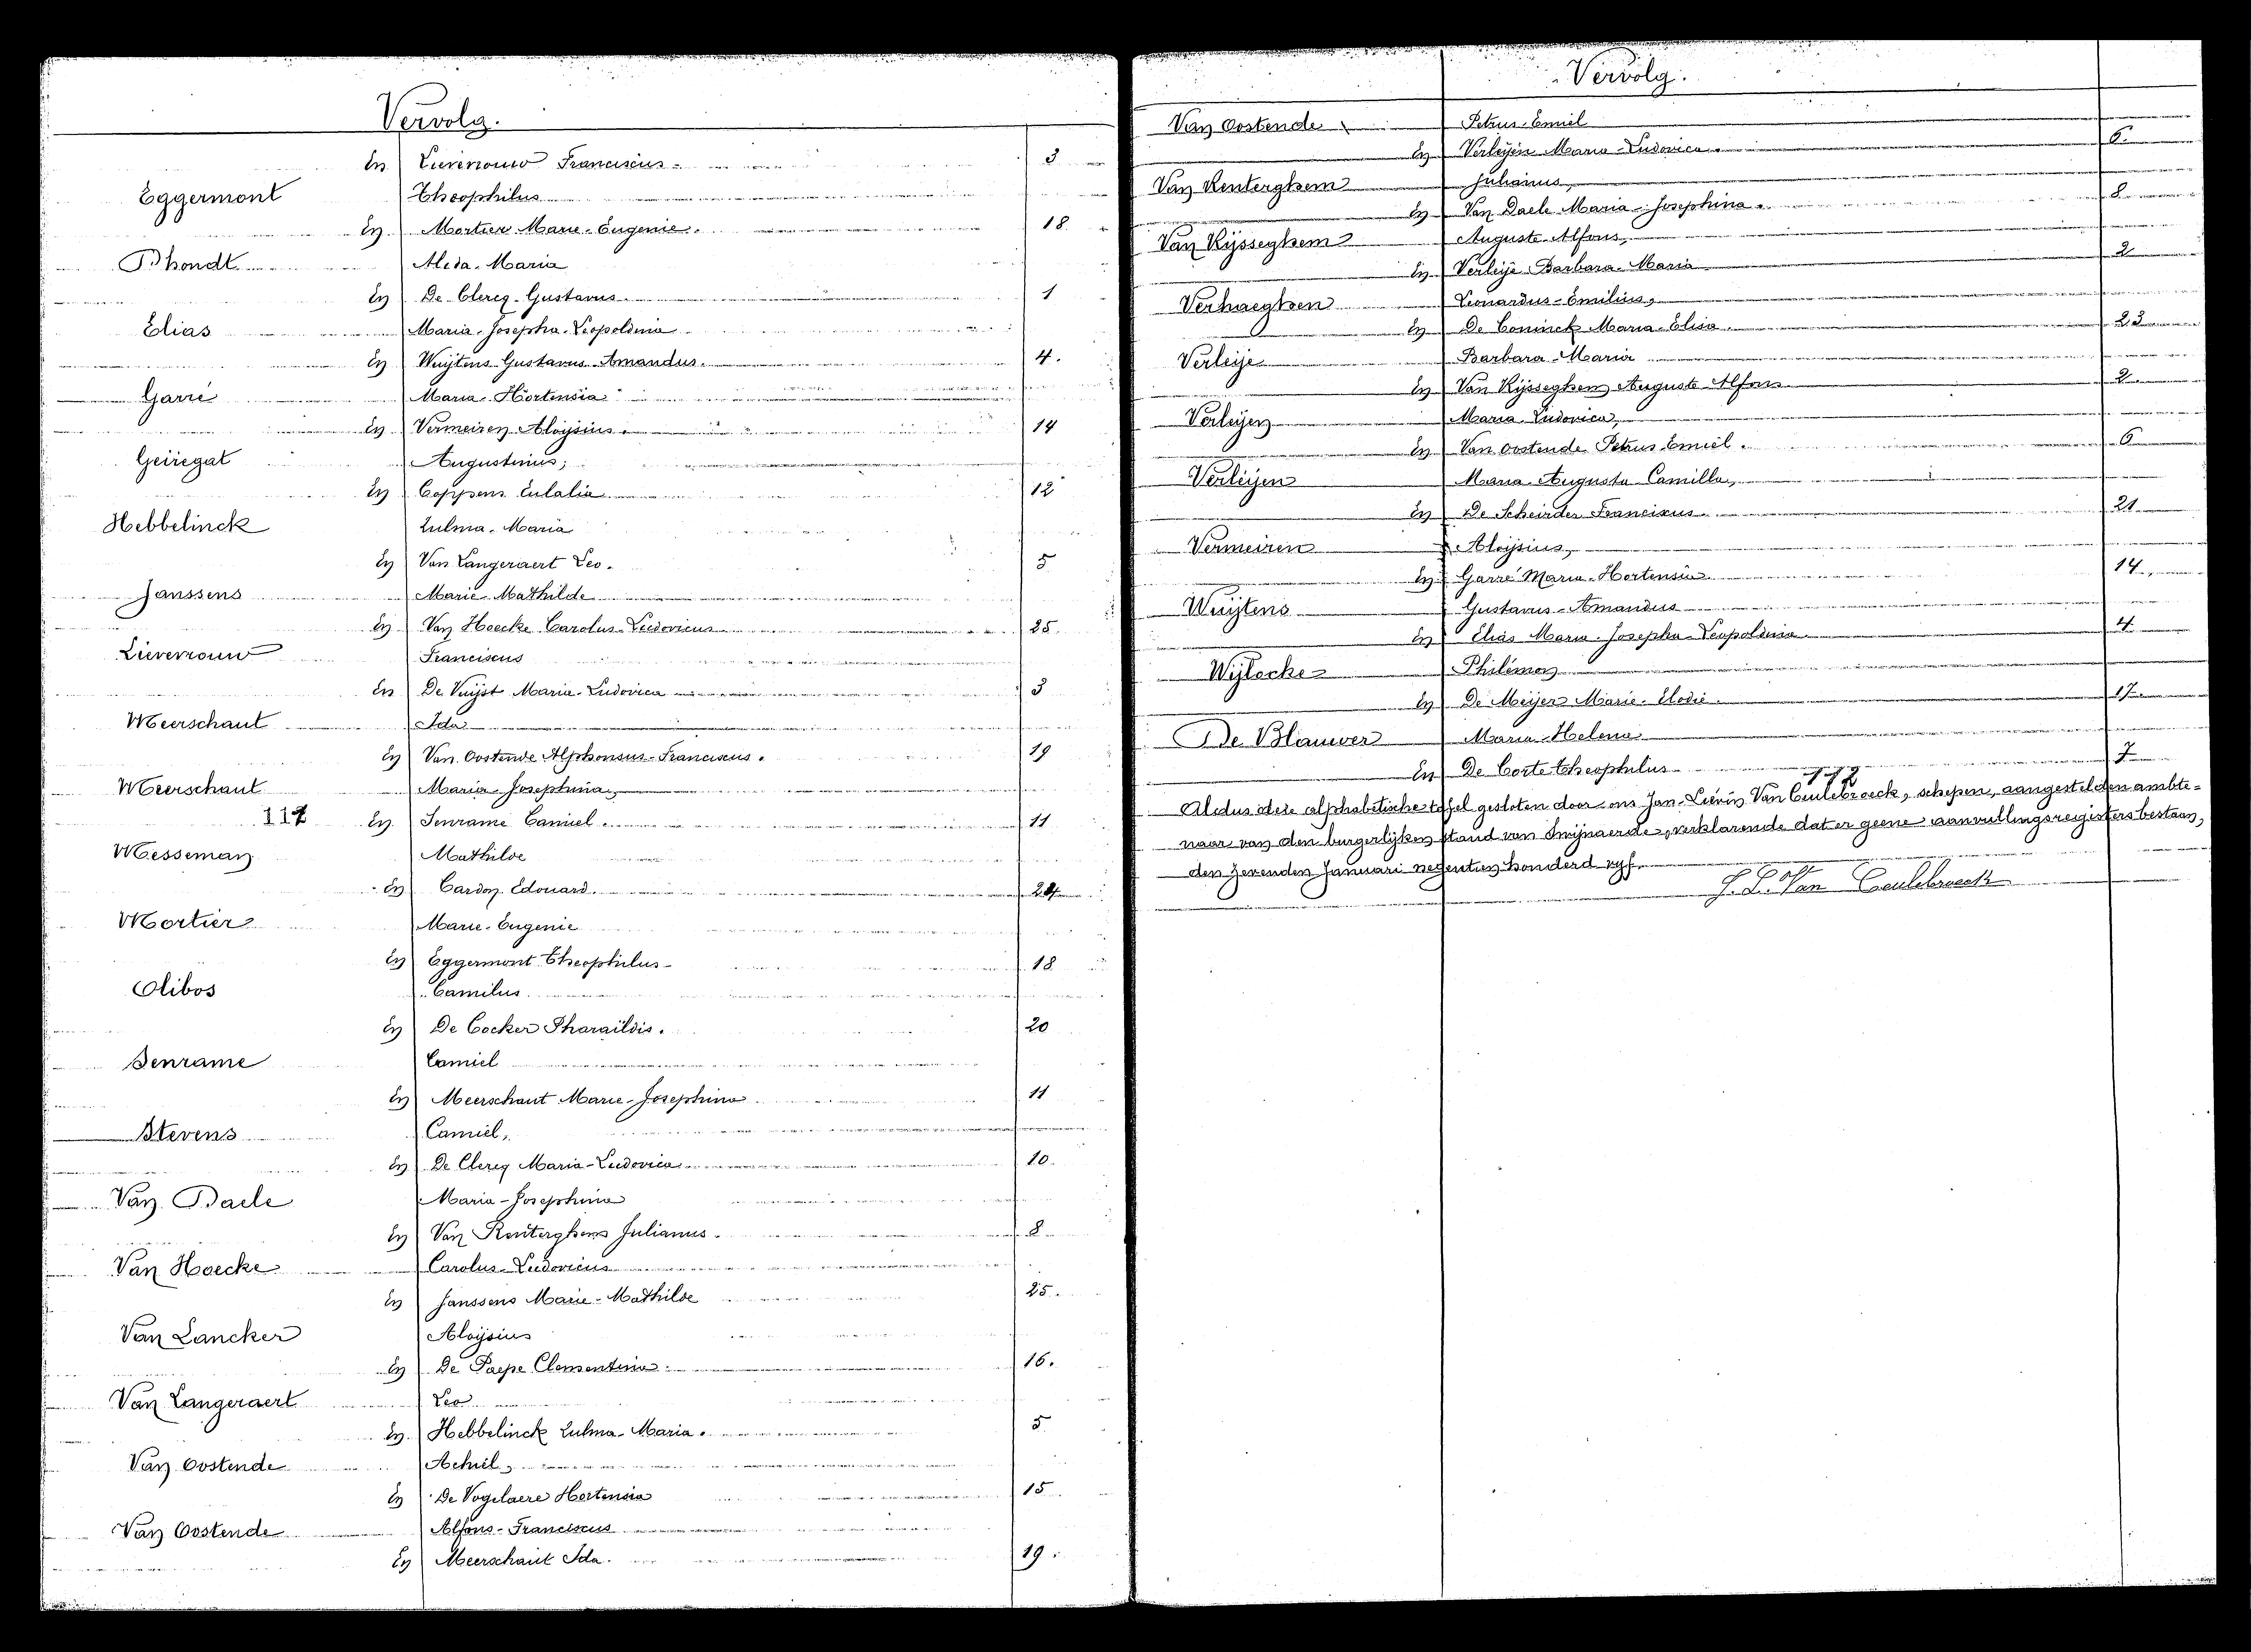 Vervolg.
En Lievrouw Franciscus 3
Eggermont Theophilus
En Mortier Marie-Eugenie. 18
D'hondt Alida-Maria
En De Clercq Gustavus 1
Elias Maria-Josepha-Leopoldina
En Wuijtens Gustavus Amandus. 4.
Garré Maria-Hortensia
En Vermeiren Aloijsius. 14
Geiregat Augustinus,
En Coppens Eulalia 12
Hebbelinck Zulma-Maria
En Van Langeraert Leo. 5
Janssens Marie-Mathilde
En Van Hoecke Carolus-Ludovicus 25.
Lievrouw Franciscus
En De Vuijst Maria-Ludovica 3
Meerschaut Ida
En Van Oostende Alphonsus-Franciscus. 19
Meerschaut Maria-Josephina,
117 En Senrame Camiel. 11
Messeman Mathilde
En Cardon Edouard. 24
Mortier Marie-Eugenie
En Eggermont Theophilus 18
Olibos Camilus
En De Cocker Pharaïldis. 20
Senrame Camiel
En Meerschaut Marie-Josephina 11
Stevens Camiel,
En De Clercq Maria-Ludovica 10
Van Daele Maria-Josephina
En Van Renterghem Julianus. 8
Van Hoecke Carolus-Ludovicus
En Janssens Marie-Mathilde 25.
Van Lancker Aloijsius
En De Paepe Clementina. 16.
Van Langeraert Leo
En Hebbelinck Zulma-Maria. 5
Van Oostende Achiel,
En De Vogelaere Hortensia 15
Van Oostende Alfons-Franciscus
En Meerschaut Ida. 19.
Vervolg.
Van Oostende Petrus-Emiel
En Verleijen Maria-Ludovica. 6.
Van Renterghem Julianus,
En Van Daele Maria-Josephina. 8
Van Rijsseghem Auguste-Alfons,
En Verleije Barbara-Maria 2
Verhaeghen Leonardus-Emilius,
En De Coninck Maria-Elisa. 23
Verleije Barbara-Maria
En Van Rijsseghem Auguste Alfons 2
Verleijen Maria-Ludovica,
En Van Oostende Petrus-Emiel. 6
Verleijen Maria-Augusta Camilla,
En De Scheirder Franciscus 21
Vermeiren Aloijsius,
En Garré Maria-Hortensia 14.
Wuijtens Gustavus-Amandus
En Elias Maria-Josepha-Leopoldina. 4
Wijlocke Philémon
En De Meijer Marie-Elodie. 17.
De Blauwer Maria-Helena
En De Corte Theophilus 7
Aldus deze alphabetische tafel gesloten door ons Jan-Lievin Van Ceulebroeck, schepen, aangestelden ambte-
naar van den burgerlijken stand van Swijnaerde, verklarende dat er geene aanvullingsregisters bestaan,
den zevenden Januari negentien honderd vijf.
J. L. Van Ceulebroeck